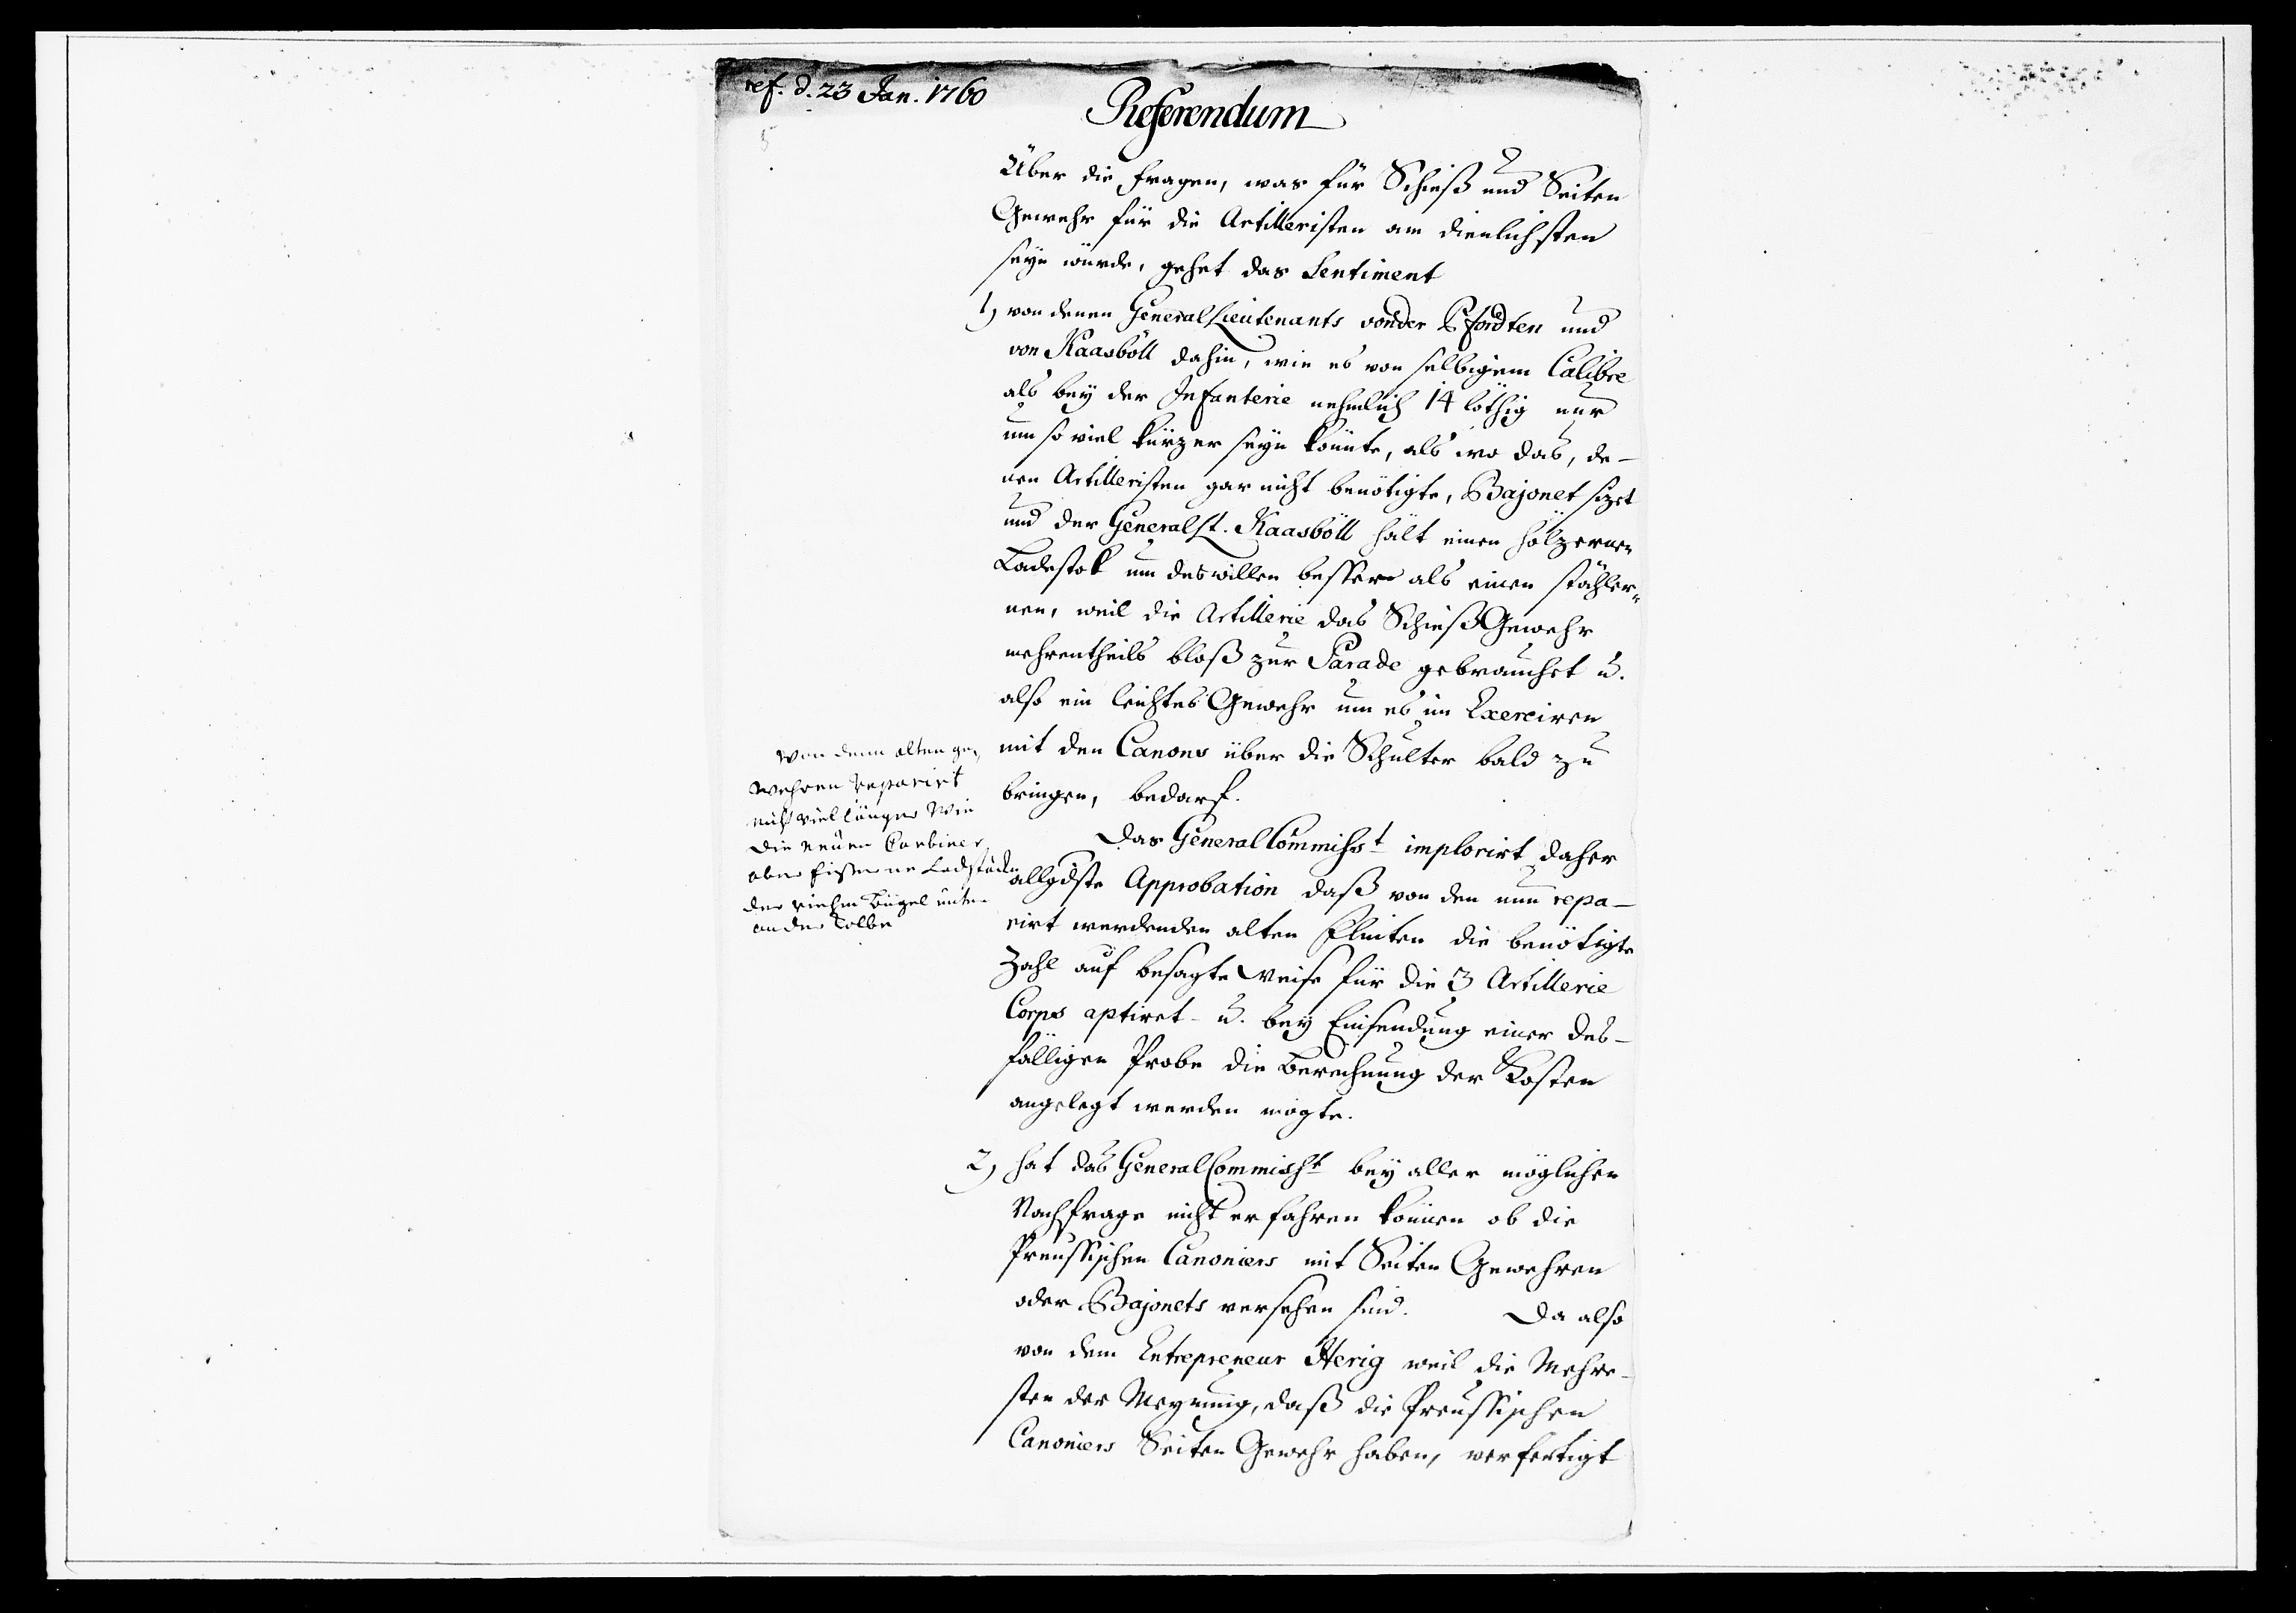 ref. d. 23 Jan. 1760
Referendum
Über die fragen, was für Schieß und Seiten
Gewehr für die Artilleristen am dienlichsten
seyn würde, gehet das Sentiment
1) von denen General Lieutenants von der Pfordten und
von Kaasböll dahin, wie es von selbigem Calibre
als bey der Infanterie nehmlich 14 löthig nur
um so viel kürzer seyn könnte, als wo das, de-
nen Artilleristen gar nicht benötigte, Bajonet sizet
und der General Lt. Kaasböll hält einen hölzernen
Ladestok um deswillen besser als einen stähler-
nen, weil die Artillerie das Schieß Gewehr
mehrentheils bloß zur Parade gebrauchet u.
also ein leichtes Gewehr um es im Exerciren
mit den Canons über die Schulter bald zu
bringen, bedarf.
Von denn alten ge-
wehren reparirt
nicht viel länger Wie
die neüen Carbiner
aber Eiserne Ladstöcke
der riehm Bügel unten
an der Kolbe
Das General Commisst implorirt daher
allgdste Approbation daß von den nun repa-
rirt werdenden alten Flinten die benötigte
Zahl auf besagte Weise für die 3 Artillerie
Corps aptiret u. bey Einsendung einer des-
fälligen Probe die Berechnung der Kosten
angelegt werden mögte.
2) hat das General Commisst bey aller möglichen
Nachfrage nicht erfahren können ob die
Preussischen Canoniers mit Seiten Gewehren
oder Bajonets versehen sind. Da also
von dem Entrepreneur Herig weil die Mehre-
sten der Meynung, daß die Preussischen
Canoniers Seiten Gewehr haben, verfertigt